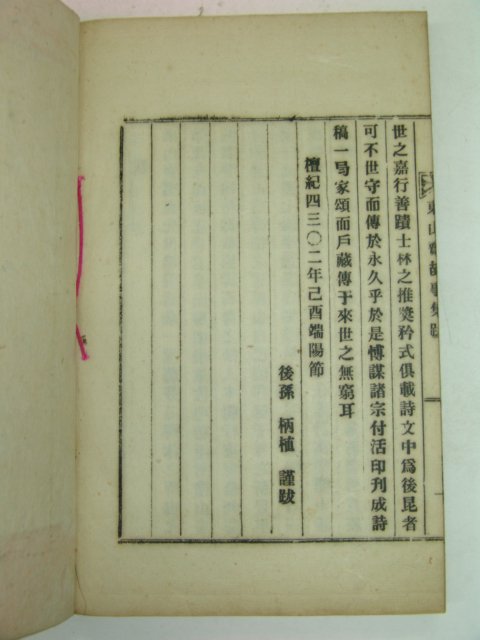 東山齋故事集跋
世之嘉行善蹟士林之推奬矜式俱載詩文中爲後昆者
可不世守而傳於永久乎於是愽謀諸宗付活印刋成詩
稿一局家頌而戶藏傳于來世之無窮耳
檀紀四三〇二年己酉端陽節
後孫 柄植 謹跋